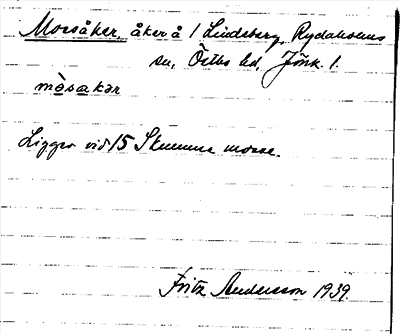 Mossåker, åker å 1 Lindeberg, Rydaholms
sn, Östbo hd, Jönk. l.
mòsakər
Ligger vid 15 Skumme mosse.
Fritz Andersson 1939.